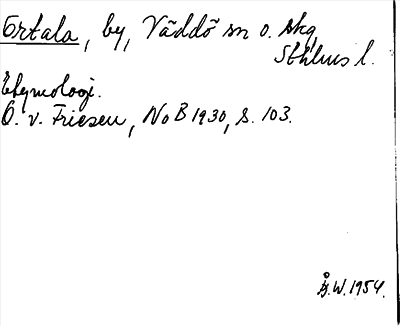 Ortala, by, Väddö sn o. skg,
Sthlms l.
Etymologi.
O. v. Friesen, NoB 1930, s. 103.
Å.W. 1954.